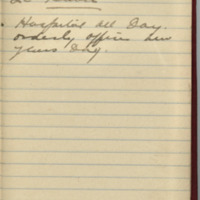 Hospital all Day.
orderly officer new
years Day.